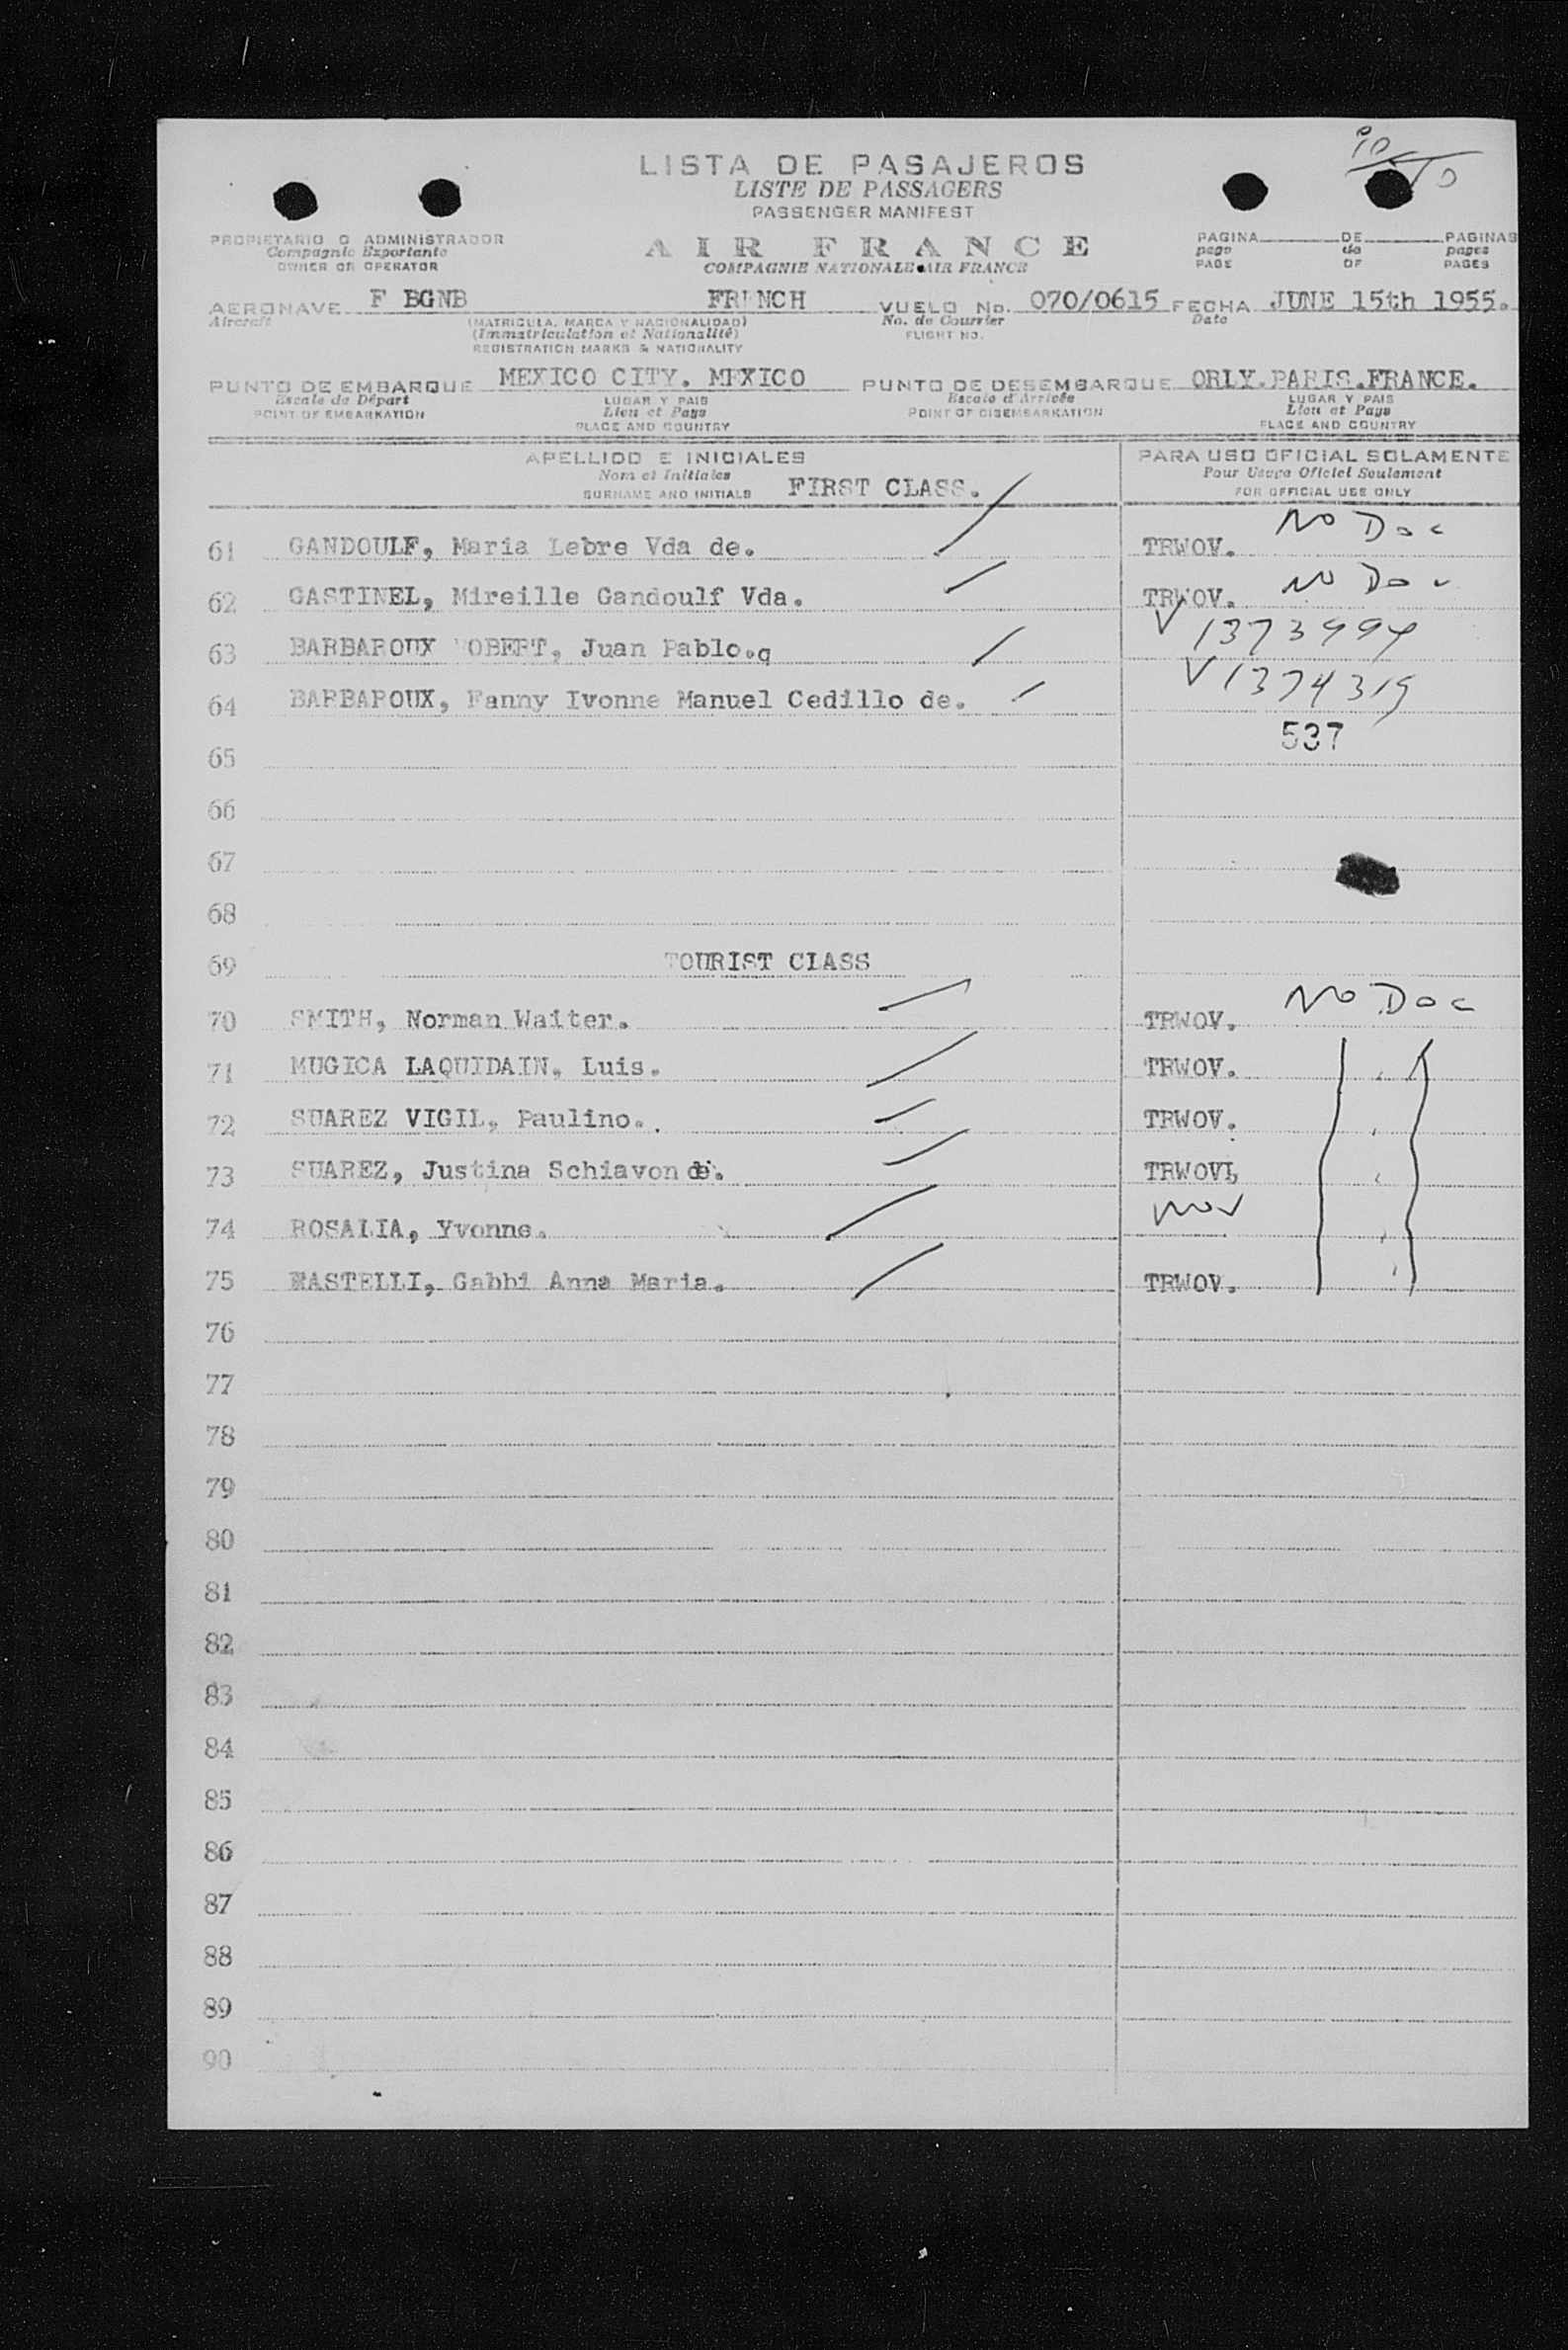 10/10
LISTA DE PASAJEROS
LISTE DE PASSAGERS
PASSENGER MANIFEST
PROPIETARIO O ADMINISTRADOR
Compagnie Exportante
OWNER OR OPERATOR
AIR FRANCE
COMPAGNIE NATIONALE AIR FRANCE
PAGINA DE PAGINAS
page de pages
PAGE OF PAGES
AERONAVE F BGNB FRENCH VUELO No. 070/0615 FECHA JUNE 15th 1955.
Aircraft (MATRICULA, MARCA Y NACIONALIDAD) No. de Courrier Date
(Immatriculation et Nationalité) FLIGHT NO.
REGISTRATION MARKS & NATIONALITY
PUNTO DE EMBARQUE MEXICO CITY. MEXICO PUNTO DE DESEMBARQUE ORLY.PARIS.FRANCE.
Escale de Départ LUGAR Y PAIS Escale d'Arrivée LUGAR Y PAIS
POINT OF EMBARKATION Lieu et Pays POINT OF DISEMBARKATION Lieu et Pays
PLACE AND COUNTRY PLACE AND COUNTRY
APELLIDO E INICIALES PARA USO OFICIAL SOLAMENTE
Nom et Initiales Pour Usage Oficiel Seulement
SURNAME AND INITIALS FIRST CLASS. FOR OFFICIAL USE ONLY
61 GANDOULF, Maria Lebre Vda de. TRWOV. No Doc
62 GASTINEL, Mireille Gandoulf Vda. TRWOV. No Doc
63 BARBAROUX ROBERT, Juan Pablo.q V 1373994
64 BARBAROUX, Fanny Ivonne Manuel Cedillo de. V 1374319
65 537
66
67
68
69 TOURIST CLASS
70 SMITH, Norman Walter. TRWOV. No Doc
71 MUGICA LAQUIDAIN, Luis. TRWOV.
72 SUAREZ VIGIL, Paulino. TRWOV.
73 SUAREZ, Justina Schiavon de. TRWOV
74 ROSALIA, Yvonne.
75 RASTELLI, Gabbi Anna Maria. TRWOV.
76
77
78
79
80
81
82
83
84
85
86
87
88
89
90